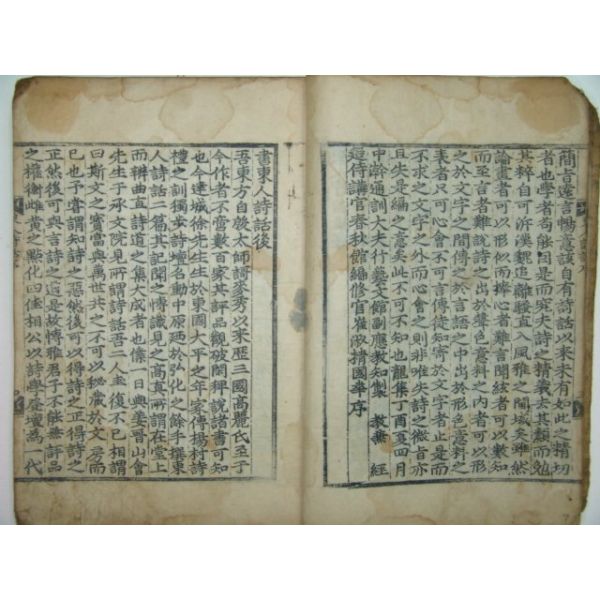 簡旨遠言暢意該自有詩話以來未有如此之精切
者也學者苟能因是而究夫詩之精義去其類而勉
其粹自可泝漢魏追離騷直入風雅之閫域矣雖然
論畫者可以形似而捧心者難言聞絃者可以數知
而至言者難說詩之出於聲色意料之內者可以形
之於文字之間傳之於言語之中出於形色意料之
表者只可心會不可言傳徒知寄於文字者止是而
不求之文字之外而心會之則非唯失詩之微旨亦
且失是編之意矣此不可不知也龍集丁酉夏四月
中澣通訓大夫行藝文館副應教知製 教兼 經
筵侍講官春秋館編修官崔淑精國華序
書東人詩話後
吾東方自殷太師謌麥秀以来歷三國高麗氏至于
今作者不啻數百家其評品觀破閑稗說諸書可知
也今達城徐先生生於東國大平之年家傳楊村詩
禮之訓獨步詩壇名動中原廼於弘化之餘手撰東
人詩話二篇其記聞之博識見之高真所謂在堂上
而辨曲直詩道之集大成者也傃一日與姜晋山會
先生于承文院見所謂詩話吾二人圭復不已相謂
曰斯文之寶當與萬世共之不可以秘藏於文房而
已也予嘗謂知詩之惡然後可以得詩之正得詩之
正然後可與言詩之道是故博雅君子不能無評品
之權衡雌黃之點化曰佳相公以詩學登壇爲一代